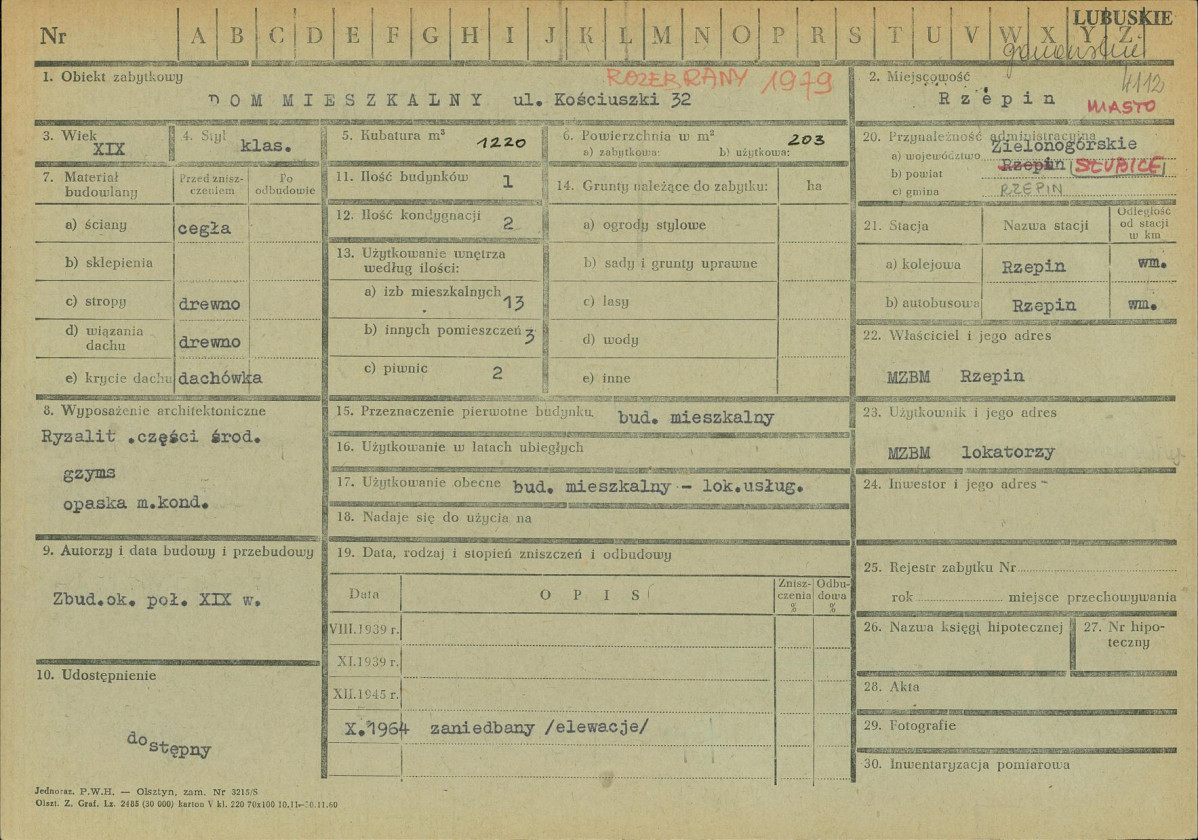 LUBUSKIE
Nr A B C D E F G H I J K L M N O P R S T U V W X Y Z
gorzowskie
1. Obiekt zabytkowy ROZEBRANY 1979
DOM MIESZKALNY ul. Kościuszki 32
2. Miejscowość 4112
Rzepin MIASTO
3. Wiek
XIX
4. Styl
klas.
5. Kubatura m³
1220
6. Powierzchnia w m²
a) zabytkowa: b) użytkowa: 203
20. Przynależność administracyjna
a) województwo Zielonogórskie
b) powiat Rzepin SŁUBICE
c) gmina RZEPIN
7. Materiał budowlany
Przed znisz-
czeniem
Po
odbudowie
a) ściany cegła
b) sklepienia
c) stropy drewno
d) wiązania
dachu drewno
e) krycie dachu dachówka
11. Ilość budynków 1
12. Ilość kondygnacji 2
13. Użytkowanie wnętrza
według ilości:
a) izb mieszkalnych 13
b) innych pomieszczeń 3
c) piwnic 2
14. Grunty należące do zabytku: ha
a) ogrody stylowe
b) sady i grunty uprawne
c) lasy
d) wody
e) inne
21. Stacja Nazwa stacji
Odległość
od stacji
w km
a) kolejowa Rzepin wm.
b) autobusowa Rzepin wm.
22. Właściciel i jego adres
MZBM Rzepin
8. Wyposażenie architektoniczne
Ryzalit .części środ.
gzyms
opaska m.kond.
15. Przeznaczenie pierwotne budynku. bud. mieszkalny
16. Użytkowanie w latach ubiegłych
17. Użytkowanie obecne bud. mieszkalny - lok.usług.
18. Nadaje się do użycia na
23. Użytkownik i jego adres
MZBM lokatorzy
24. Inwestor i jego adres
9. Autorzy i data budowy i przebudowy
Zbud.ok. poł. XIX w.
10. Udostępnienie
dostępny
19. Data, rodzaj i stopień zniszczeń i odbudowy
Data OPIS
Znisz-
czenia
%
Odbu-
dowa
%
VIII.1939 r.
XI.1939 r.
XII.1945 r.
X.1964 zaniedbany /elewacje/
25. Rejestr zabytku Nr
rok miejsce przechowywania
26. Nazwa księgi hipotecznej
27. Nr hipo-
teczny
28. Akta
29. Fotografie
30. Inwentaryzacja pomiarowa
Jednoraz. P.W.H. — Olsztyn, zam. Nr 3215/S
Olszt. Z. Graf. Lz. 2485 (30 000) karton V kl. 220 70x100 10.11.-30.11.60